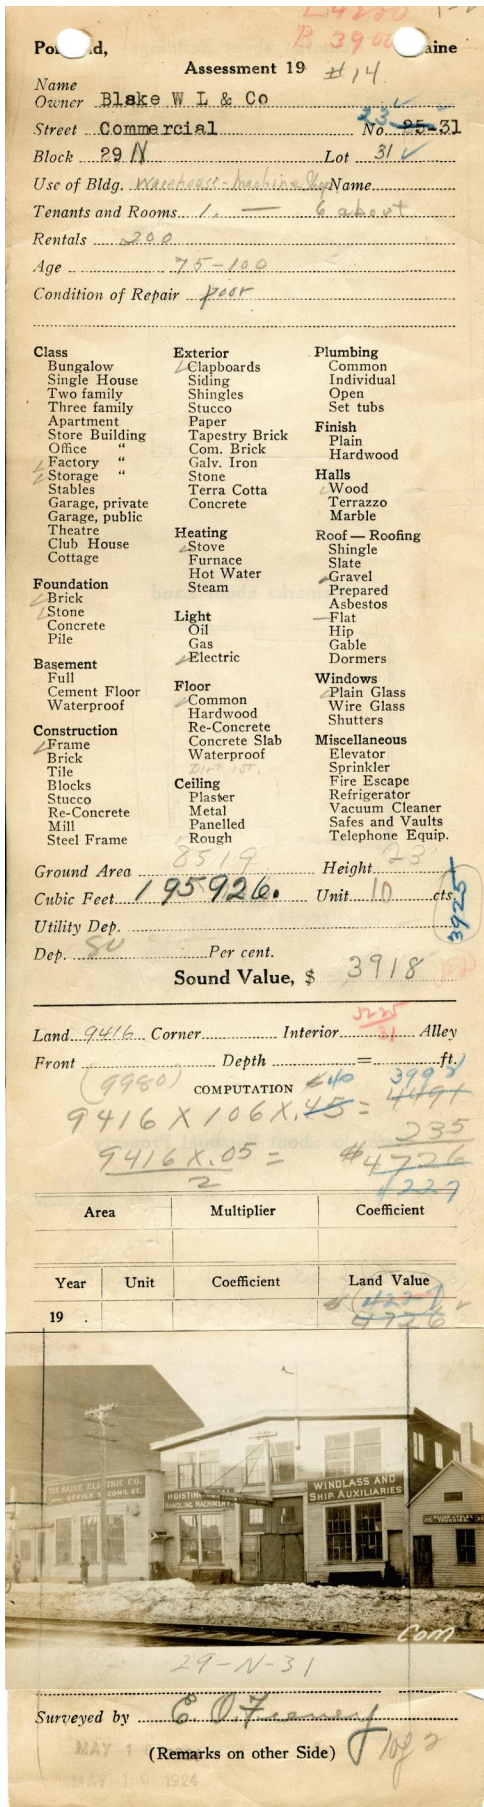 L 4200
B 3900
Portland, Maine
Assessment 19 #14
Name
Owner Blake W L & Co
23
Street Commercial No. 25-31
Block 29 N Lot 31
Use of Bldg. Warehouse-Machine Shop Name
Tenants and Rooms 1. — 6 about
Rentals 200
Age 75-100
Condition of Repair poor
Class
Bungalow
Single House
Two family
Three family
Apartment
Store Building
Office "
Factory "
Storage "
Stables
Garage, private
Garage, public
Theatre
Club House
Cottage
Foundation
Brick
Stone
Concrete
Pile
Basement
Full
Cement Floor
Waterproof
Construction
Frame
Brick
Tile
Blocks
Stucco
Re-Concrete
Mill
Steel Frame
Exterior
Clapboards
Siding
Shingles
Stucco
Paper
Tapestry Brick
Com. Brick
Galv. Iron
Stone
Terra Cotta
Concrete
Heating
Stove
Furnace
Hot Water
Steam
Light
Oil
Gas
Electric
Floor
Common
Hardwood
Re-Concrete
Concrete Slab
Waterproof
Dirt 1st.
Ceiling
Plaster
Metal
Panelled
Rough
Plumbing
Common
Individual
Open
Set tubs
Finish
Plain
Hardwood
Halls
Wood
Terrazzo
Marble
Roof — Roofing
Shingle
Slate
Gravel
Prepared
Asbestos
Flat
Hip
Gable
Dormers
Windows
Plain Glass
Wire Glass
Shutters
Miscellaneous
Elevator
Sprinkler
Fire Escape
Refrigerator
Vacuum Cleaner
Safes and Vaults
Telephone Equip.
Ground Area 8519 Height 23
Cubic Feet 195926. Unit 10 cts.
3925
Utility Dep.
Dep. 80 Per cent.
Sound Value, $ 3918
3225
31
Land 9416 Corner Interior Alley
Front Depth = ft.
(9980) COMPUTATION 40 3992
9416 X 106 X .45 = 4491
235
9416 X .05 = $4726
2 4227
Area Multiplier Coefficient
Year Unit Coefficient Land Value
4227
19 . 4726
THE MAINE ELECTRIC CO.
OFFICE COM'L ST.
HOISTING
HANDLING MACHINERY
WINDLASS AND
SHIP AUXILIARIES
TRUCKING.
Com
29-N-31
Surveyed by E O. Feeney
(Remarks on other Side) 1 of 2
MAY 1
MAY 10 1924